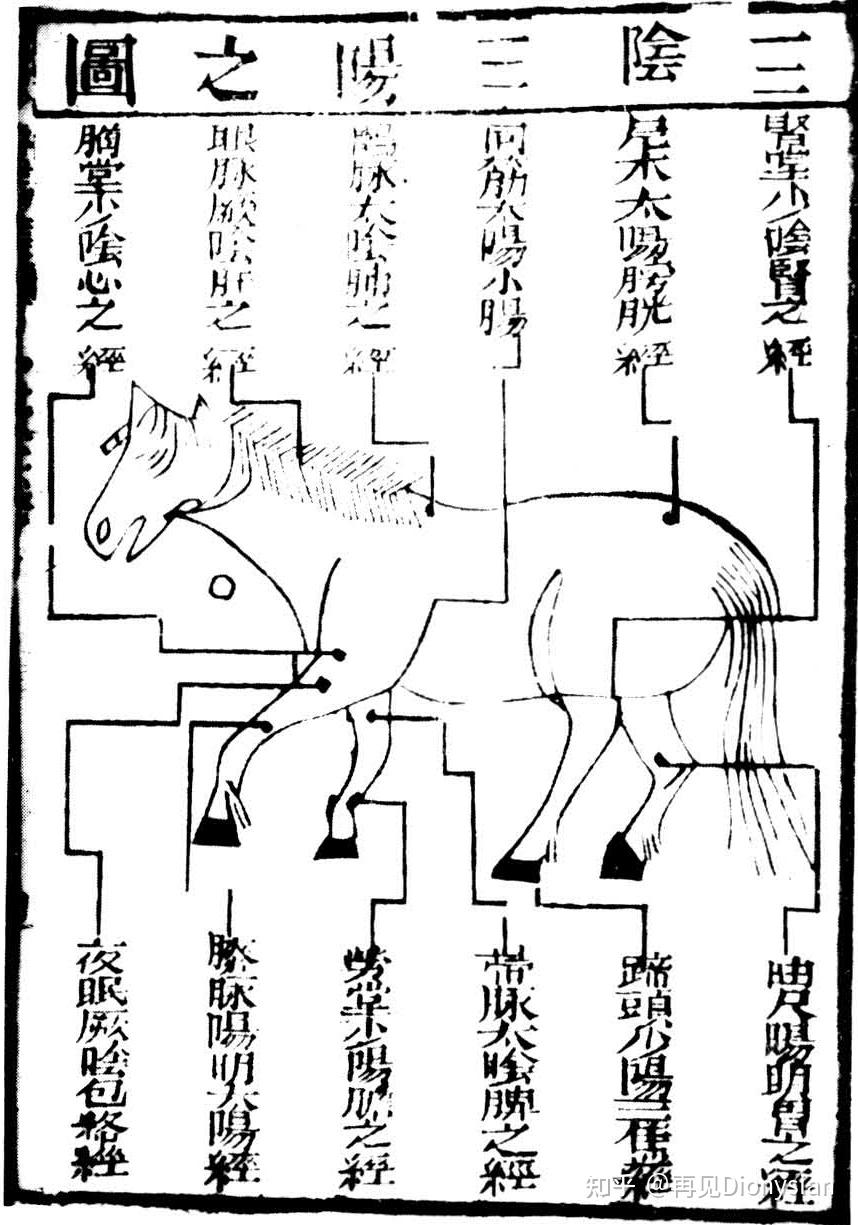 三陰三陽之圖
腎堂少陰賢之經
尾本太陽膀胱經
同筋太陽小腸
鶻脉太陰肺之經
眼脉厥陰肝之經
胸堂少陰心之經
曲尺陽明胃之經
蹄頭少陽三焦經
帶脉太陰脾之經
勞堂少陽膽之經
膝脉陽明大陽經
夜眼厥陰包絡經
知乎 @再见Dionysian